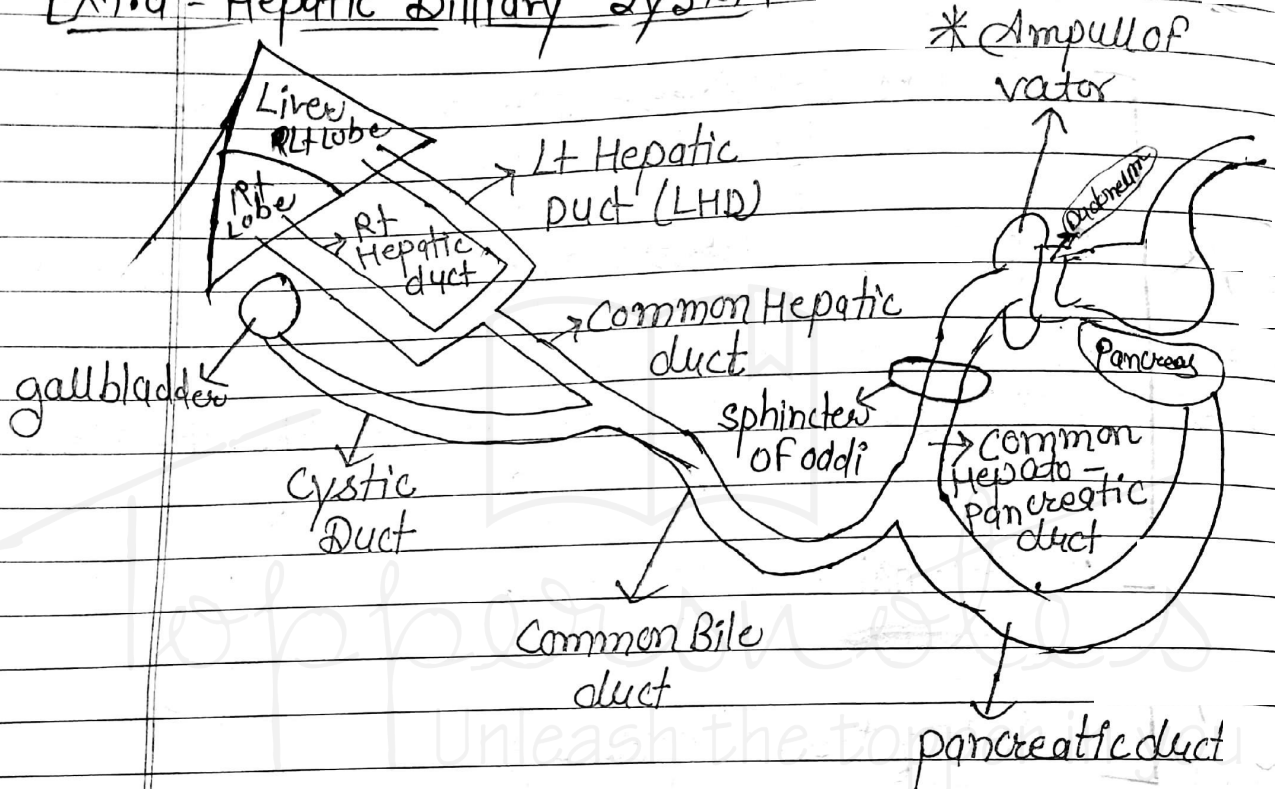 Extra - Hepatic Billiary System
* Ampull of
vator
Liver
Lt Lobe
Rt
Lobe
Rt
Hepatic
duct
Lt Hepatic
Duct (LHD)
Duodneum
Common Hepatic
duct
Pancreas
gallbladder
sphincter
of oddi
Common
Hepato-
pancreatic
duct
Cystic
Duct
Common Bile
duct
pancreatic duct
Toppersnotes
Unleash the topper in you